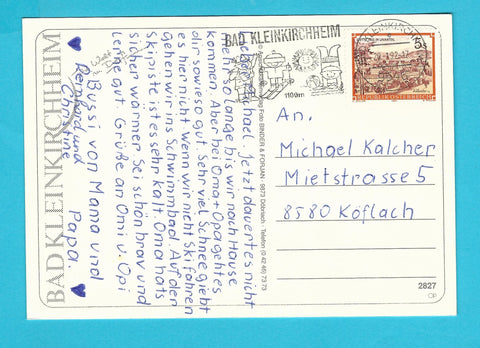 BAD KLEINKIRCHHEIM
Lieber Michael. Jetzt dauert es nicht
mehr so lange bis wir nach Hause
kommen. Aber bei Oma + Opa geht es
dir sowieso gut. Sehr viel Schnee giebt
es hier nicht. Wenn wir nicht Ski fahren
gehen wir ins Schwimmbad. Auf der
Skipiste ist es sehr kalt. Oma hats
sicher wärmer. Sei schön brav und
lerne gut. Grüße an Omi u. Opi
Bussi von Mama und
Papa.
Reinhard und
Christine
Foto BINDER & FORJAN · 9873 Döbriach Telefon (0 42 46) 73 73
BAD KLEINKIRCHHEIM
1100m
5s
REPUBLIK ÖSTERREICH
An.
Michael Kalcher
Mietstrasse 5
8580 Köflach
2827